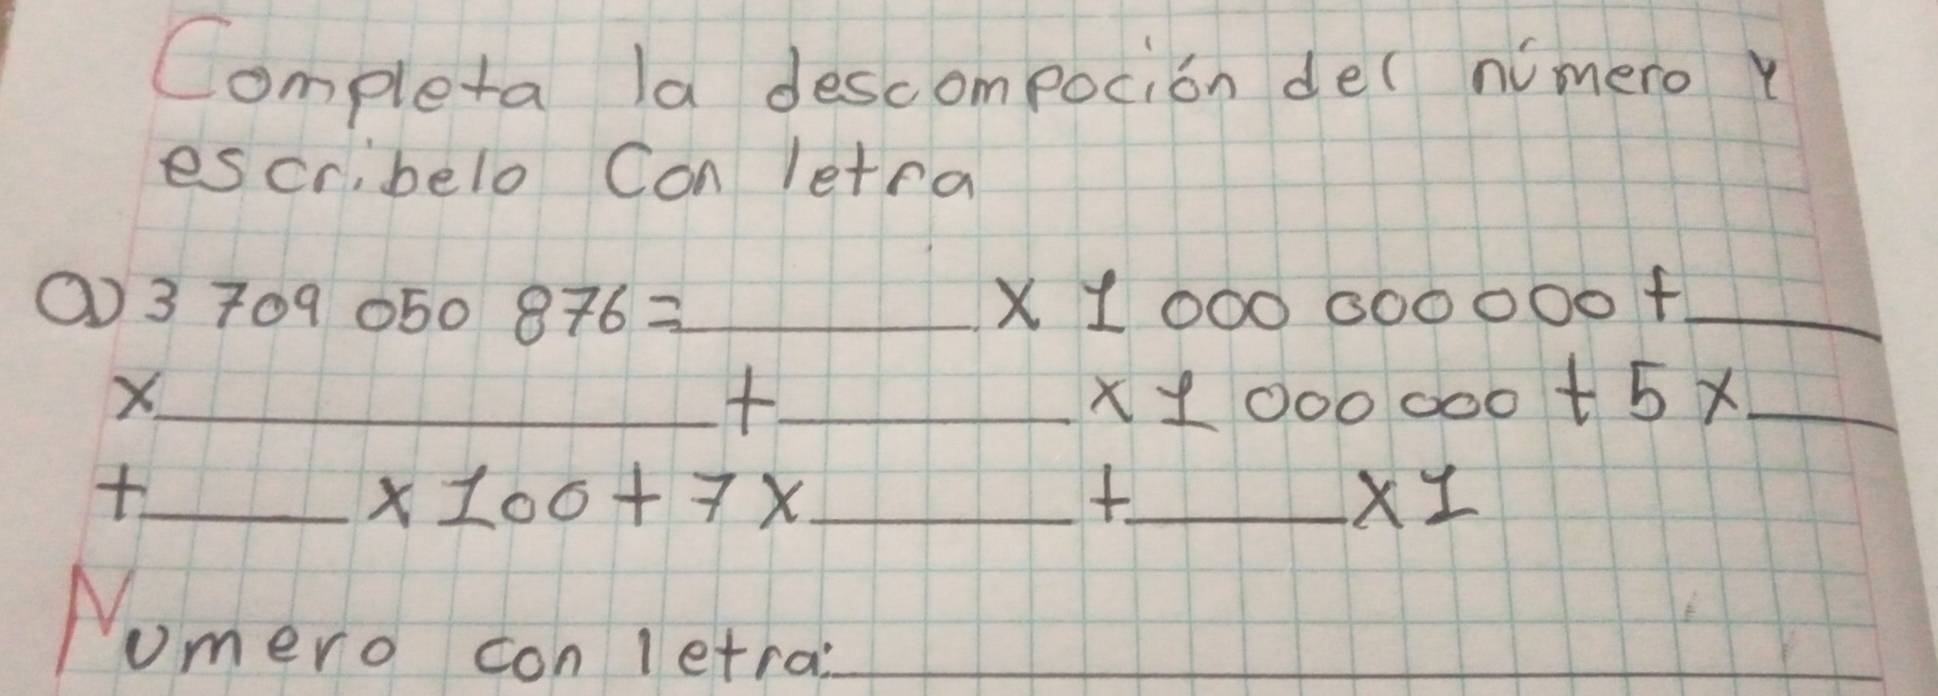 Completa la descompoción del número y
escribelo Con letra
a) 3 709 050 876 = ________ x 1 000 000 000 + _____
x ________________ + ________ x 1 000 000 + 5 x ____
+ _____ x 100 + 7 x _______ + ______ x 1
Numero con letra: ______________________________